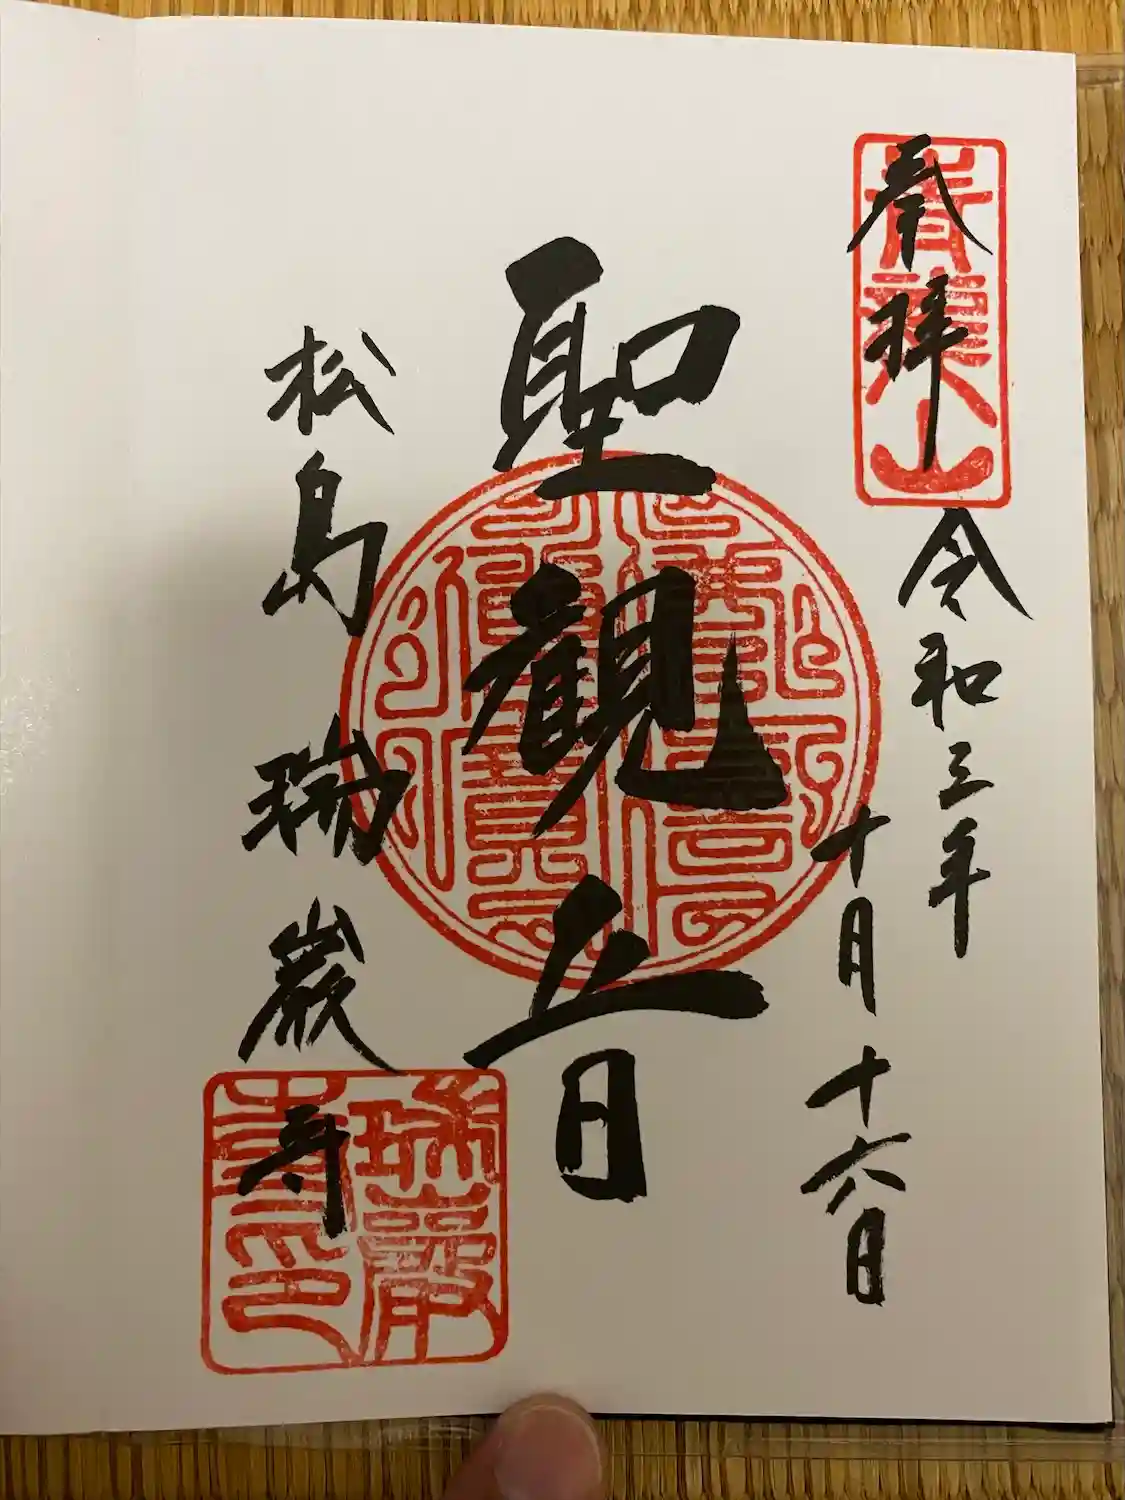 奉拝
令和三年
十月十六日
聖観音
松島 瑞巌寺
瑞巖
寺印